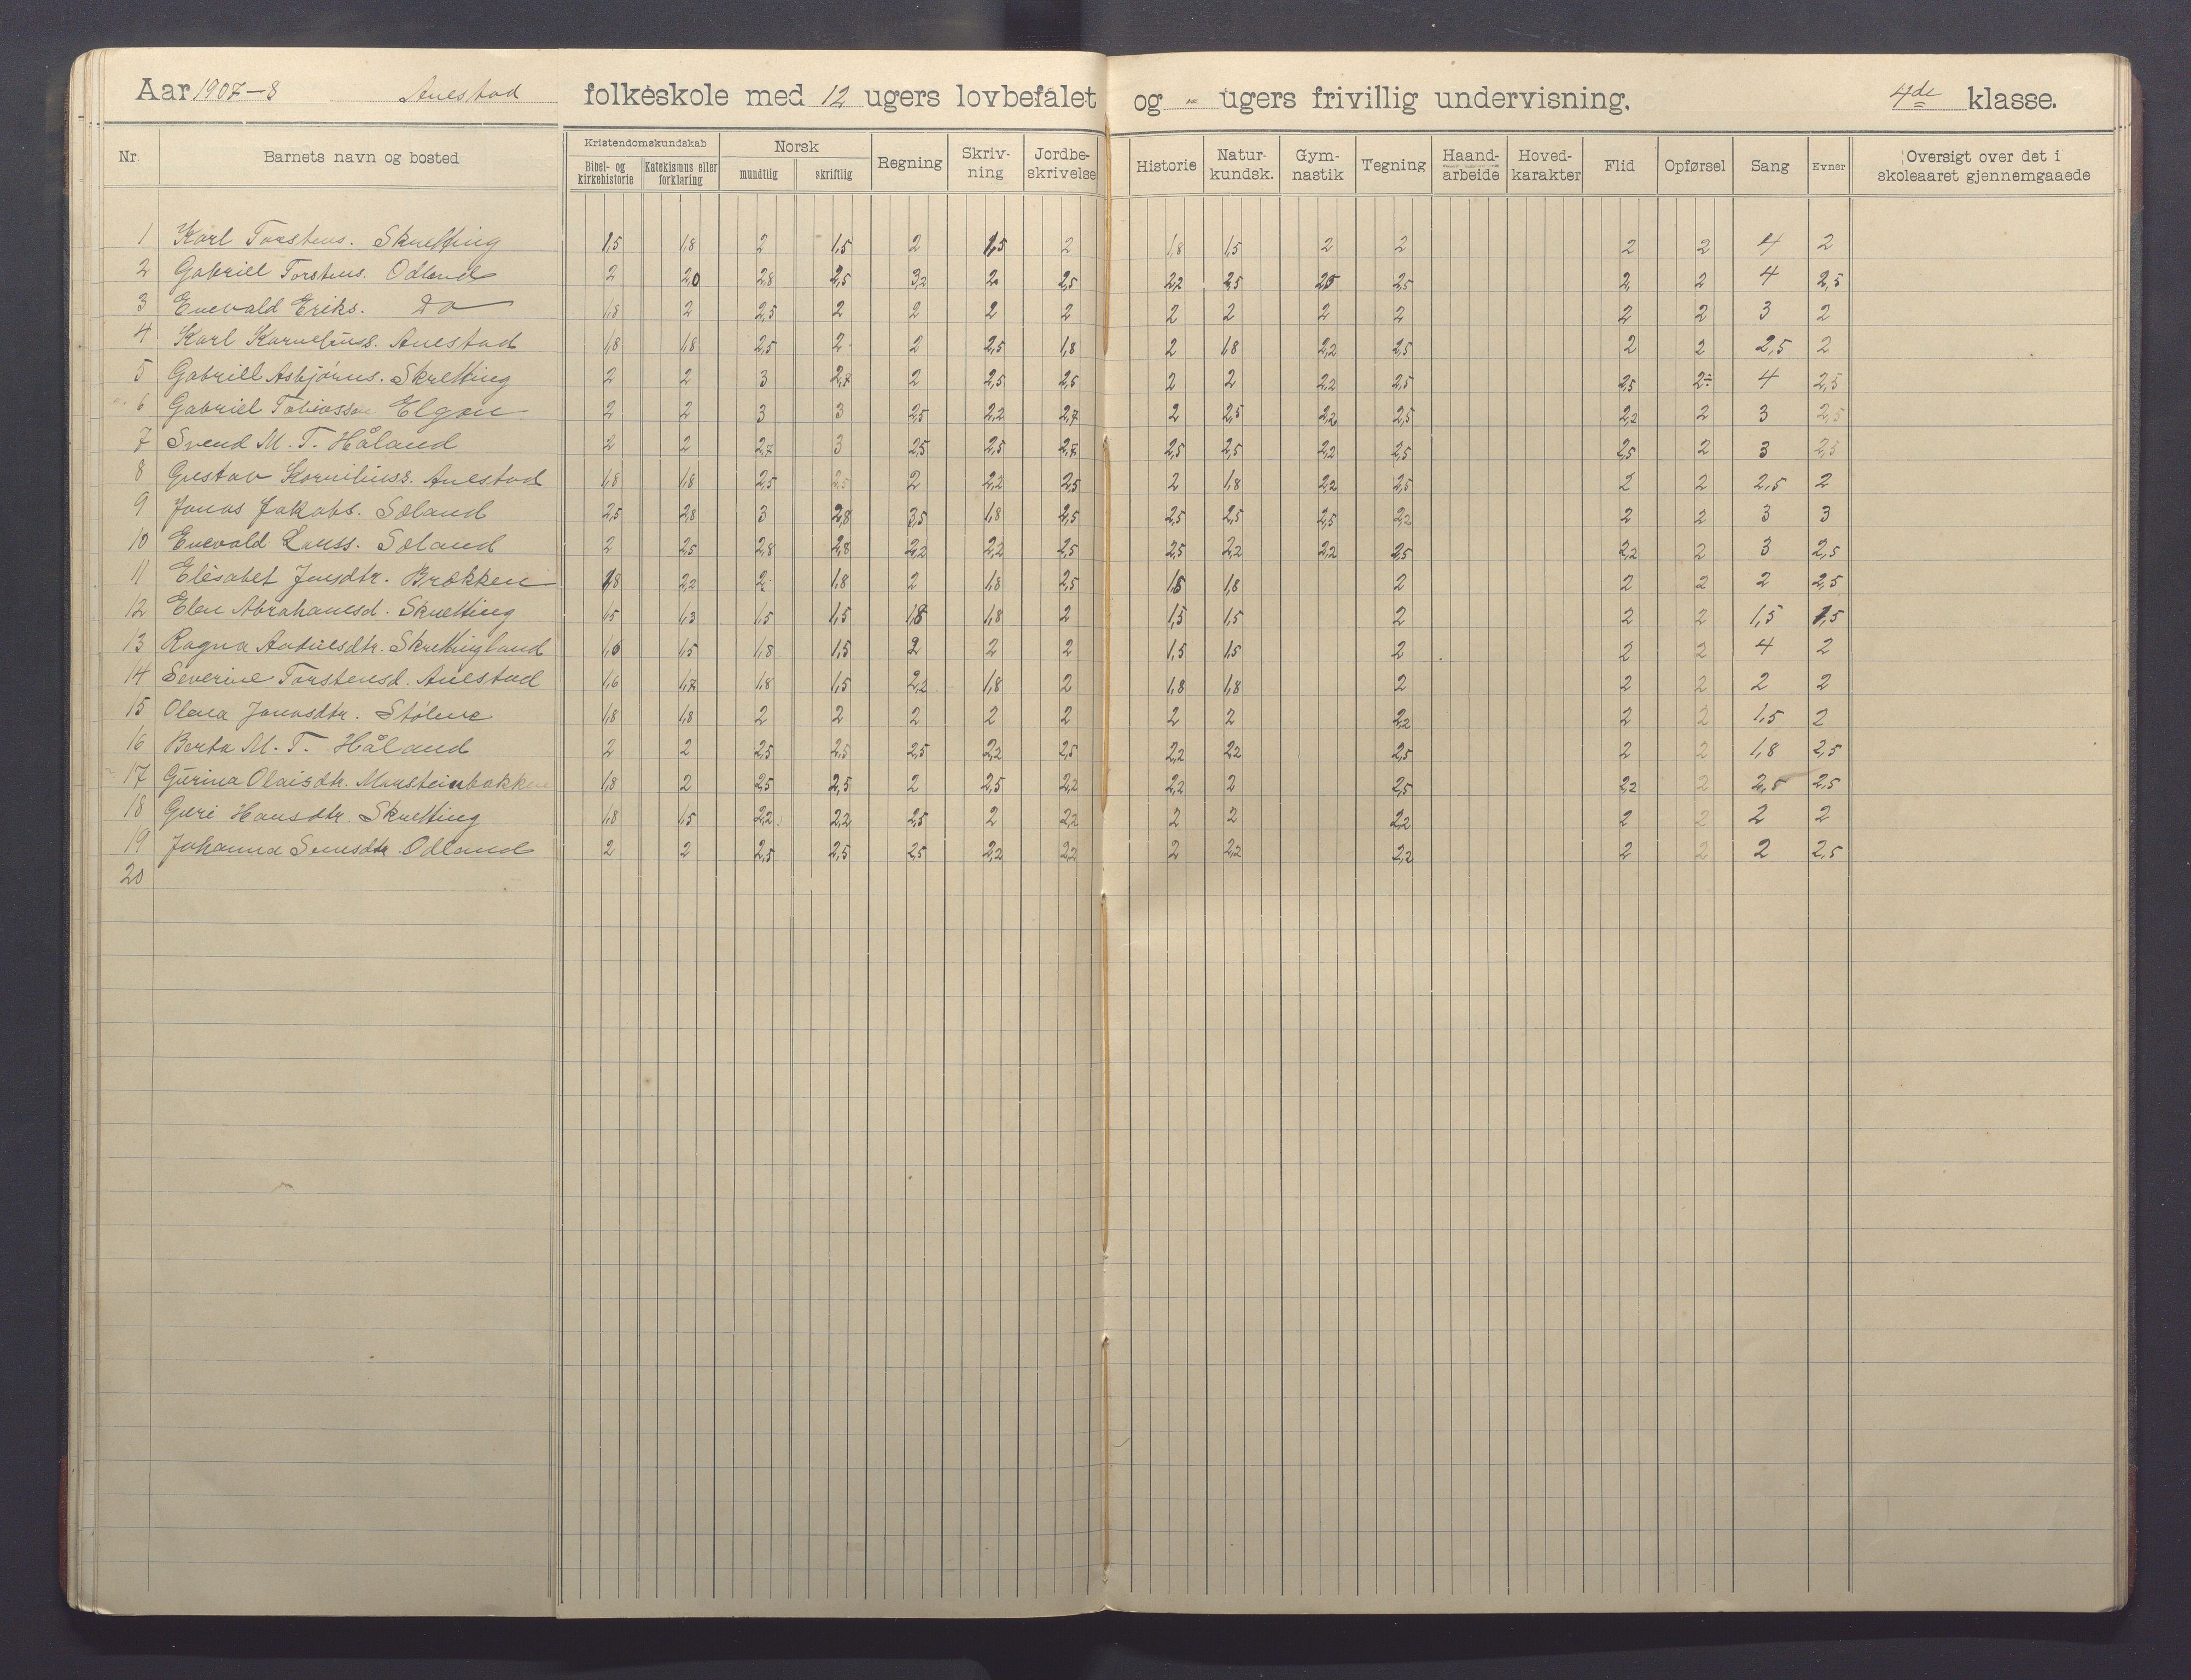 Aar 1907-8 Auestad folkeskole med 12 ugers lovbefalet og - ugers frivillig undervisning. 4de klasse.
Nr. Barnets navn og bosted Kristendomskundskab Bibel- og kirkehistorie Katekismus eller forklaring Norsk mundtlig skriftlig Regning Skriv-ning Jordbe-skrivelse Historie Natur-kundsk. Gym-nastik Tegning Haand-arbeide Hoved-karakter Flid Opførsel Sang Evner Oversigt over det i skoleaaret gjennemgaaede
1 Karl Torstens. Skretting 1,5 1,8 2 1,5 2 1,5 2 1,8 1,5 2 2 2 2 4 2
2 Gabriel Torstens. Odland 2 2,0 2,8 2,5 3,2 2 2,5 2,2 2,5 2,5 2,5 2 2 4 2,5
3 Enevald Eriks. Do 1,8 2 2,5 2 2 2 2 2 2 2 2 2 2 3 2
4 Karl Korneliuss. Auestad 1,8 1,8 2,5 2 2 2,5 1,8 2 1,8 2,2 2,5 2 2 2,5 2
5 Gabriell Asbjørns. Skretting 2 2 3 2,7 2 2,5 2,5 2 2 2,2 2,5 2,5 2÷ 4 2,5
6 Gabriel Tobiasson Elgan 2 2 3 3 2,5 2,2 2,7 2 2,5 2,2 2,5 2,2 2 3 2,5
7 Svend M. T. Håland 2 2 2,7 3 2,5 2,5 2,7 2,5 2,5 2,2 2,5 2,5 2 3 2,5
8 Gustav Korniliuss. Auestad 1,8 1,8 2,5 2,5 2 2,2 2,5 2 1,8 2,2 2,5 2 2 2,5 2
9 Jonas Jakobs. Søland 2,5 2,8 3 2,8 3,5 1,8 2,5 2,5 2,5 2,5 2,2 2 2 3 3
10 Enevold Larss. Søland 2 2,5 2,8 2,8 2,2 2,2 2,5 2,5 2,2 2,2 2,5 2,2 2 3 2,5
11 Elisabet Jensdtr. Brekken 1,8 2,2 2 1,8 2 1,8 2,5 1,8 1,8 2 2 2 2 2,5
12 Elen Abrahamsd. Skretting 1,5 1,3 1,5 1,5 1,8 1,8 2 1,5 1,5 2 2 2 1,5 1,5
13 Ragna Andreasdtr. Skrettingland 1,6 1,5 1,8 1,5 2 2 2 1,5 1,5 2 2 2 4 2
14 Severine Torstensd. Auestad 1,6 1,7 1,8 1,5 2,2 1,8 2 1,8 1,8 2 2 2 2 2
15 Olena Jonasdtr. Stølene 1,8 1,8 2 2 2 2 2 2 2 2,2 2 2 1,5 2
16 Berta M. T. Håland 2 2 2,5 2,5 2,5 2,2 2,5 2,2 2,2 2,5 2 2 1,8 2,5
17 Gurina Olaisdtr. 1,8 2 2,5 2,5 2 2,5 2,2 2,2 2 2,5 2,2 2 2,5 2,5
18 Guri Hansdtr. Skretting 1,8 1,5 2,2 2,2 2,5 2 2,2 2 2 2,2 2 2 2 2
19 Johanna Odland 2 2 2,5 2,5 2,5 2,2 2,2 2 2,2 2,2 2 2 2 2,5
20